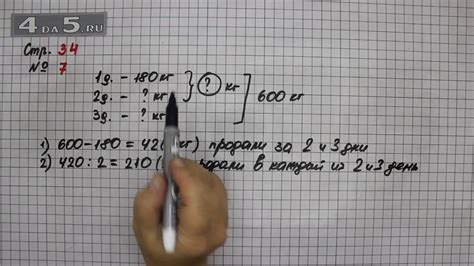 4DA5.RU
Стр. 34
№ 7
1д. – 180 кг
2д. – ? кг
? кг
3д. – ? кг
600 кг
1) 600–180 = 42 кг) продали за 2 и 3 дни
2) 420 : 2 = 210 ( в каждый из 2 и 3 день